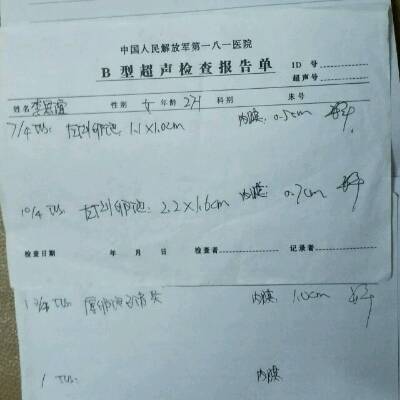 中国人民解放军第一八一医院
B型超声检查报告单
ID 号
超声号
姓名 性别 女 年龄 27 科别 床号
7/4 TVS: 右侧卵泡: 1.1X1.0cm 内膜: 0.5cm
10/4 TVS: 右侧卵泡: 2.2X1.6cm 内膜: 0.7cm
检查日期 年 月 日 检查者 记录者
TVS: 原卵泡已消失 内膜 1.0cm
TVS: 内膜